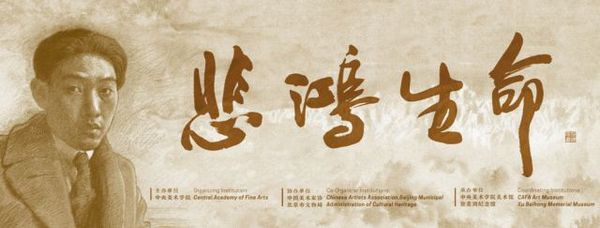 悲鴻生命
主办单位 Organizing Institution
中央美术学院 Central Academy of Fine Arts
协办单位 Co-Organizer Institutions
中国美术家协 Chinese Artists Association,Beijing Municipal
北京市文物局 Administration of Cultural Heritage
承办单位 Coordinating Institutions
中央美术学院美术馆 CAFA Art Museum
徐悲鸿纪念馆 Xu Beihong Memorial Museum